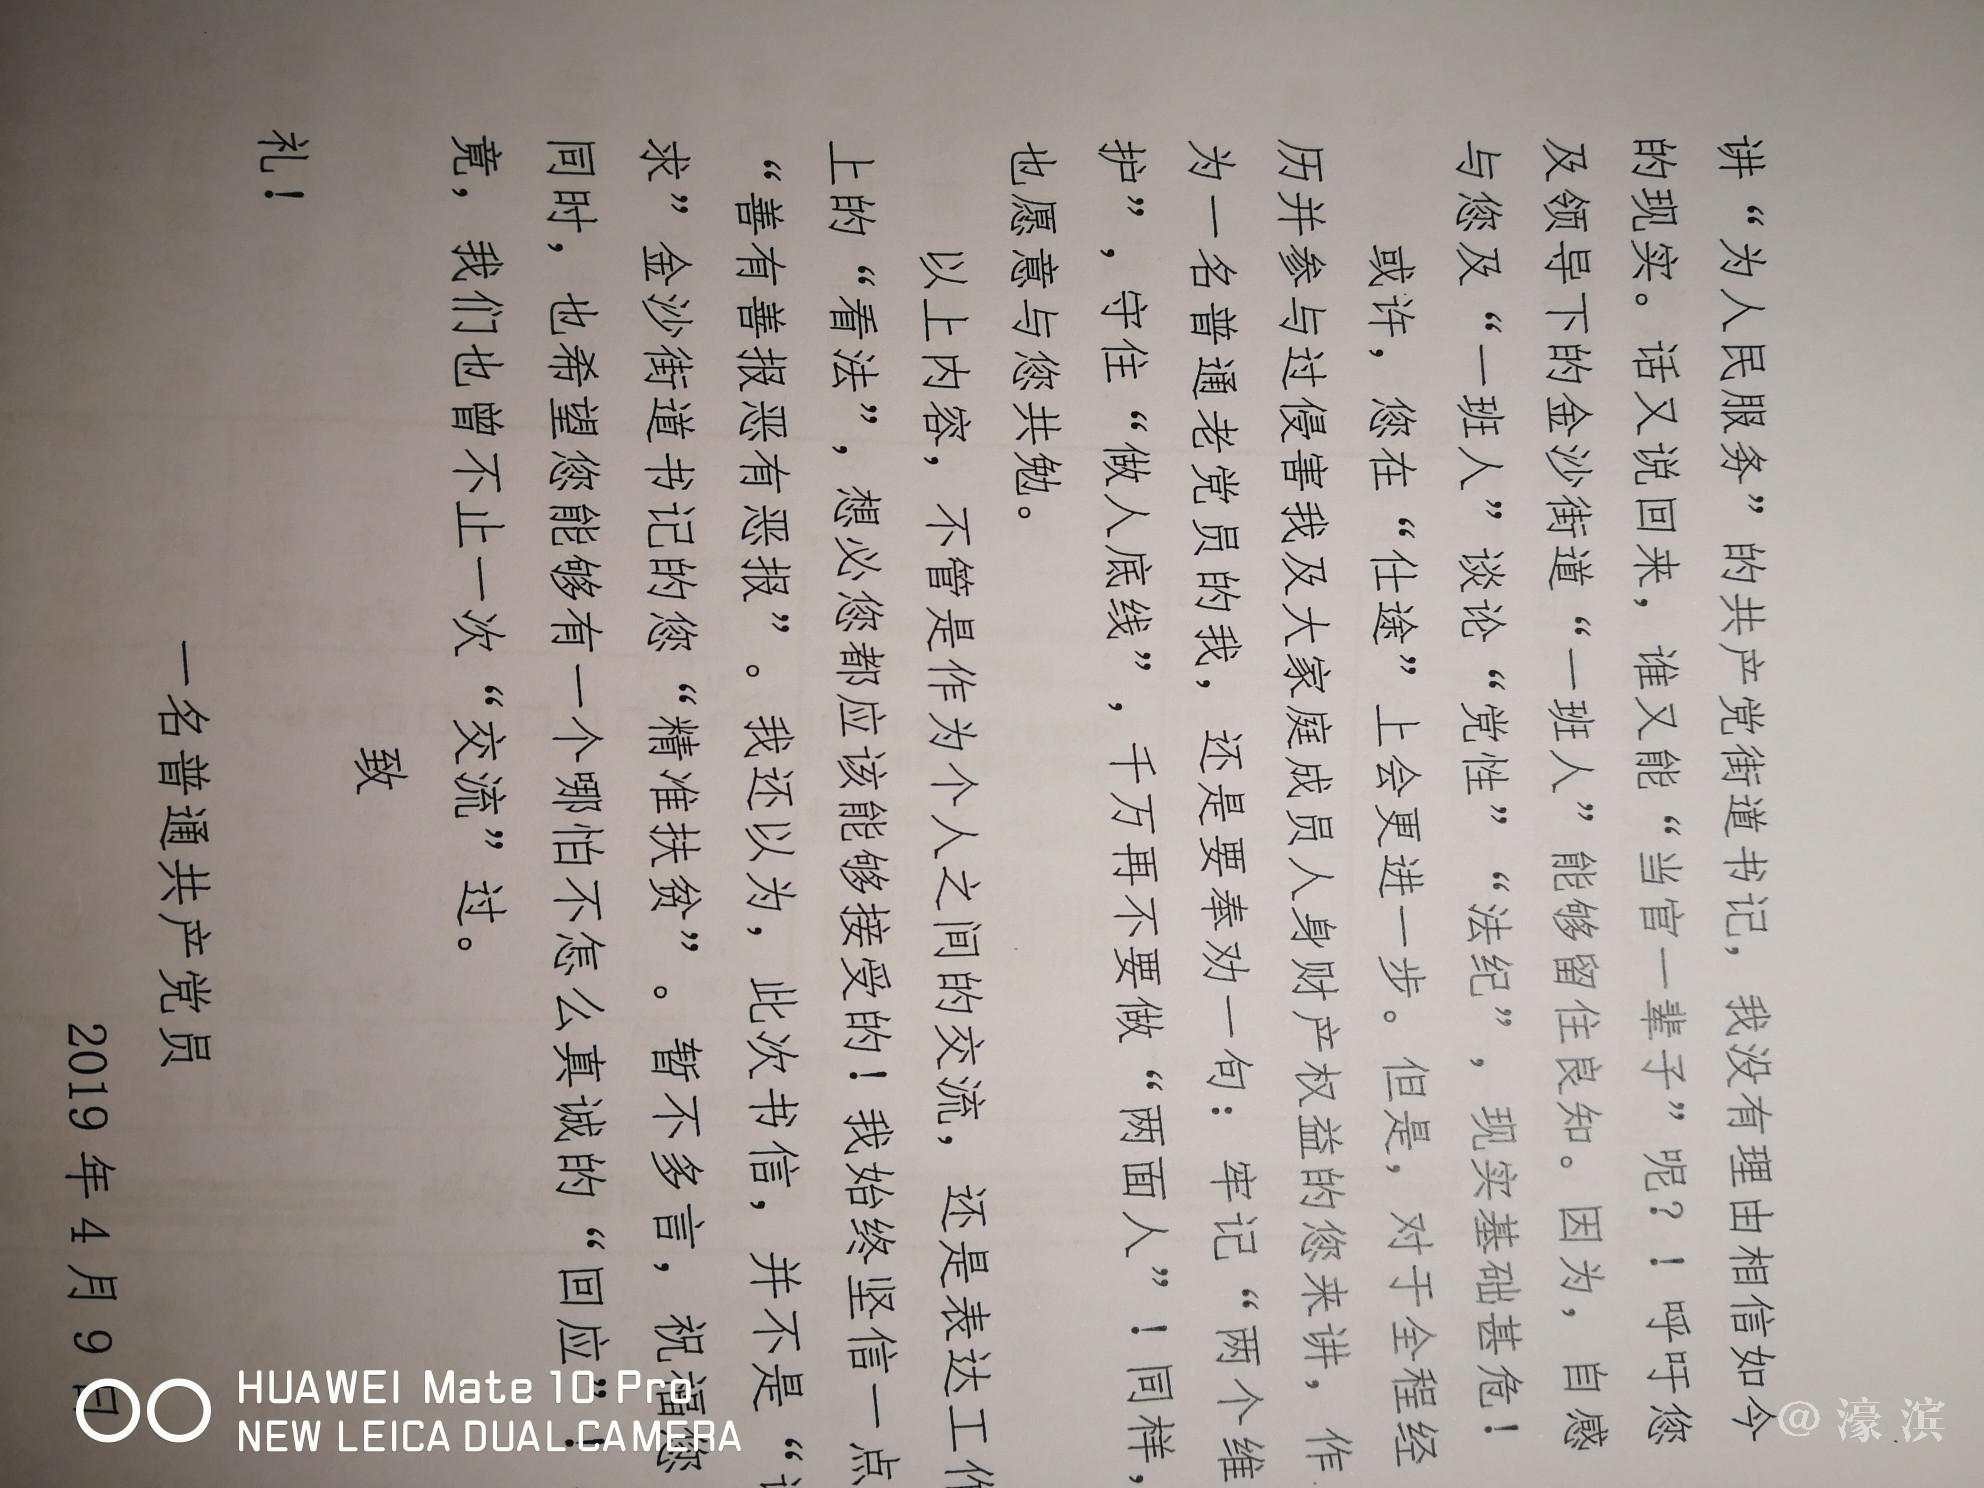 讲“为人民服务”的共产党街道书记，我没有理由相信如今
的现实。话又说回来，谁又能“当官一辈子”呢？！呼吁您
及领导下的金沙街道“一班人”能够留住良知。因为，自感
与您及“一班人”谈论“党性”“法纪”，现实基础甚危！
或许，您在“仕途”上会更进一步。但是，对于全程经
历并参与过侵害我及大家庭成员人身财产权益的您来讲，作
为一名普通老党员的我，还是要奉劝一句：牢记“两个维
护”，守住“做人底线”，千万再不要做“两面人”！同样，
也愿意与您共勉。
以上内容，不管是作为个人之间的交流，还是表达工作
上的“看法”，想必您都应该能够接受的！我始终坚信一点
“善有善报恶有恶报”。我还以为，此次书信，并不是“
求”金沙街道书记的您“精准扶贫”。暂不多言，祝福您
同时，也希望您能够有一个哪怕不怎么真诚的“回应”！
竟，我们也曾不止一次“交流”过。
致
礼！
一名普通共产党员
2019年4月9日
HUAWEI Mate 10 Pro
NEW LEICA DUAL CAMERA
@濠滨